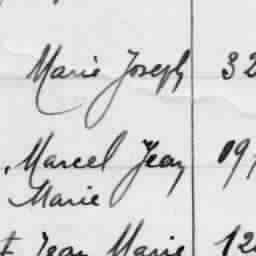 Marie Joseph 32
Marcel Jean 09
Marie
Jean Marie 12